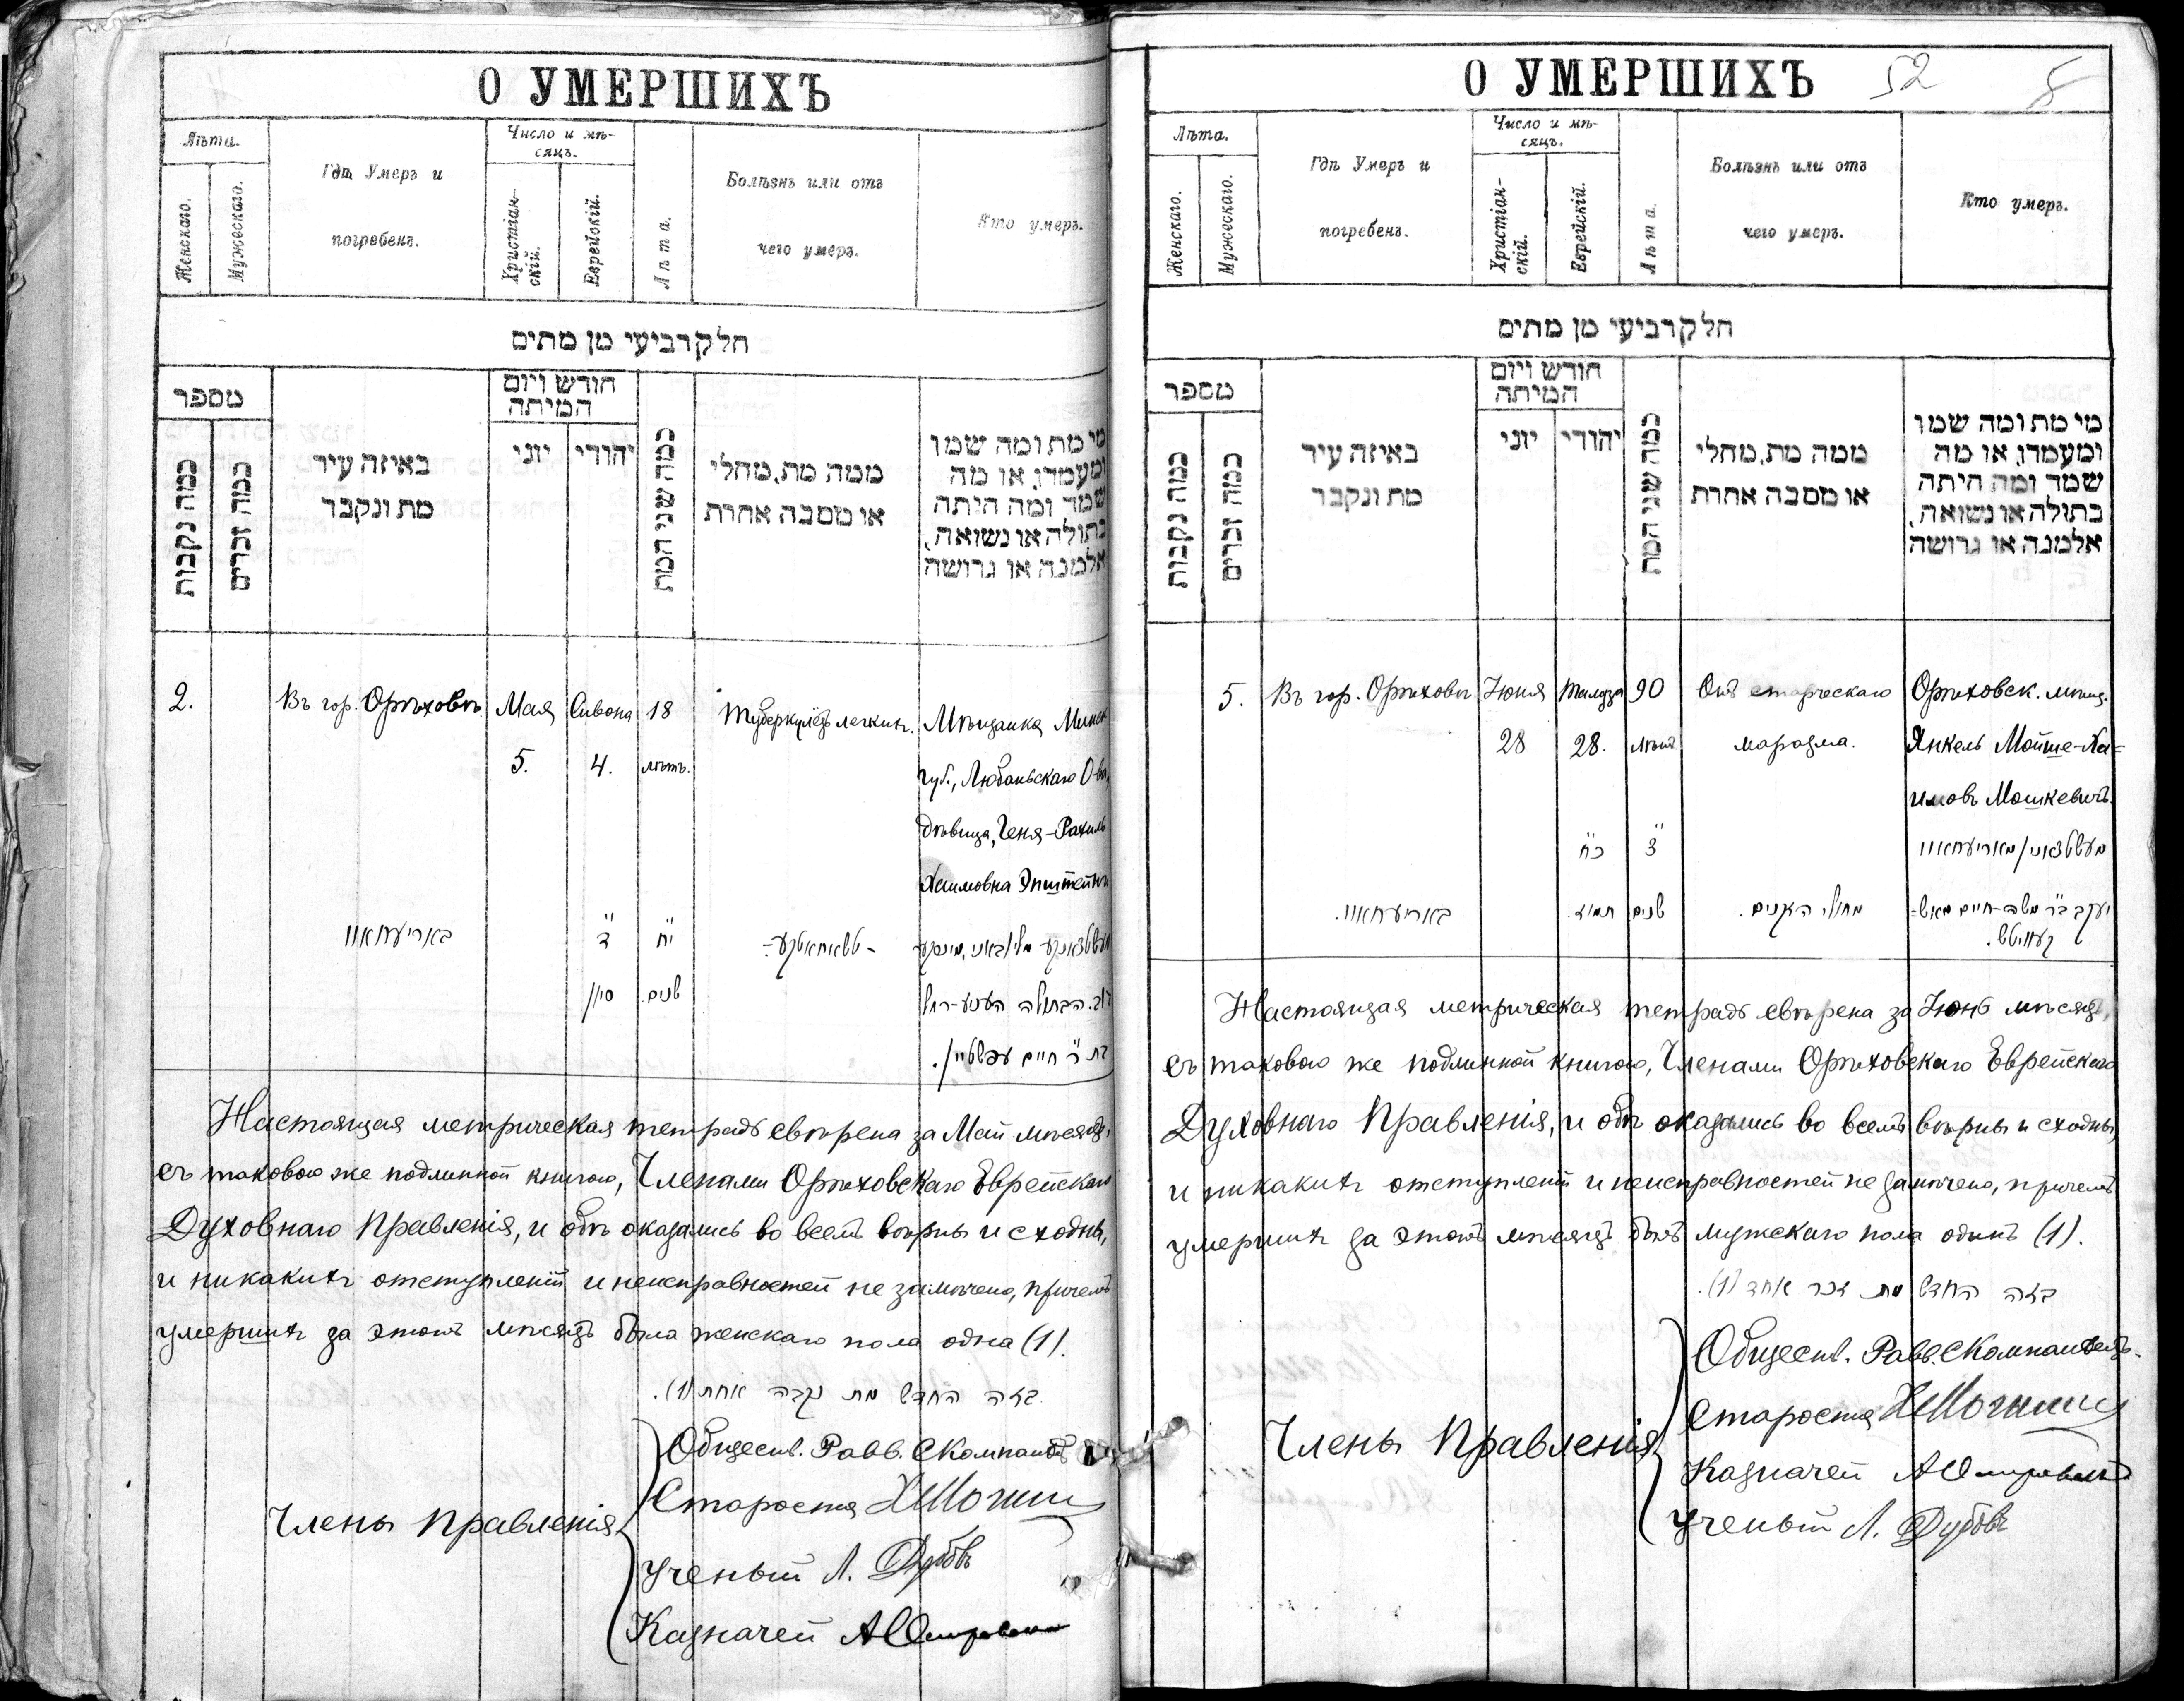 О УМЕРШИХЪ
Лѣта.
Женскаго.
Мужескаго.
Гдѣ Умеръ и
погребенъ.
Число и мѣ-
сяцъ.
Христіан-
скій.
Еврейскій.
Лѣта.
Болѣзнь или отъ
чего умеръ.
Кто умеръ.
חלק רביעי מן מתים
מספר
כמה נקבות
כמה זכרים
באיזה עיר
מת ונקבר
חודש ויום
המיתה
יוני
יהודי
כמה שני המת
ממה מת, מחלי
או מסבה אחרת
מי מת ומה שמו
ומעמדו, או מה
שמד ומה היתה
בתולה או נשואה,
אלמנה או גרושה
2.
Въ гор. Орѣховѣ
Мая
5.
Сивона
4.
18
лѣтъ.
Туберкулёзъ легкихъ.
Мѣщанка Минск
губ., Любаньскаго О-ва,
дѣвица, Геня-Рахиль
Хаимовна Эпштейнъ
באריעחאוו
ד
סיון
יח
שנים
הבתולה העניע-רחל
בת ר' חיים עפשטיין.
Настоящая метрическая тетрадь свѣрена за Май мѣсяцъ,
съ таковою же подлинной книгою, Членами Орѣховскаго Еврейскаго
Духовнаго Правленія, и обѣ оказались во всемъ вѣрны и сходны,
и никакихъ отступленій и неисправностей не замѣчено, причемъ
умершихъ за этотъ мѣсяцъ была женскаго пола одна (1).
בזה החדש מת נקבה אחת (1).
Члены Правленія
Обществ. Равв. С Компан
Староста
Ученый Л. Дубовъ
Казначей
О УМЕРШИХЪ 52 5
Лѣта.
Женскаго.
Мужескаго.
Гдѣ Умеръ и
погребенъ.
Число и мѣ-
сяцъ.
Христіан-
скій.
Еврейскій.
Лѣта.
Болѣзнь или отъ
чего умеръ.
Кто умеръ.
חלק רביעי מן מתים
מספר
כמה נקבות
כמה זכרים
באיזה עיר
מת ונקבר
חודש ויום
המיתה
יוני
יהודי
כמה שני המת
ממה מת, מחלי
או מסבה אחרת
מי מת ומה שמו
ומעמדו, או מה
שמד ומה היתה
בתולה או נשואה,
אלמנה או גרושה
5.
Въ гор. Орѣховѣ
Іюня
28
Тамуза
28.
90
лѣтъ
Отъ старческаго
маразма.
Орѣховск. мѣщ.
Янкель Мойше-Ха=
имовъ Мошкевичъ.
באריעחאוו.
כח
תמוז.
צ
שנים
מחולי הזקנים.
יעקב ב"ר משה-חיים מאש=
קעוויטש.
Настоящая метрическая тетрадь свѣрена за Іюнь мѣсяцъ,
съ таковою же подлинной книгою, Членами Орѣховскаго Еврейскаго
Духовнаго Правленія, и обѣ оказались во всемъ вѣрны и сходны,
и никакихъ отступленій и неисправностей не замѣчено, причемъ
умершихъ за этотъ мѣсяцъ былъ мужскаго пола одинъ (1).
בזה החדש מת זכר אחד (1).
Члены Правленія
Обществ. Равв. С
Староста
Казначей
Ученый Л. Дубовъ